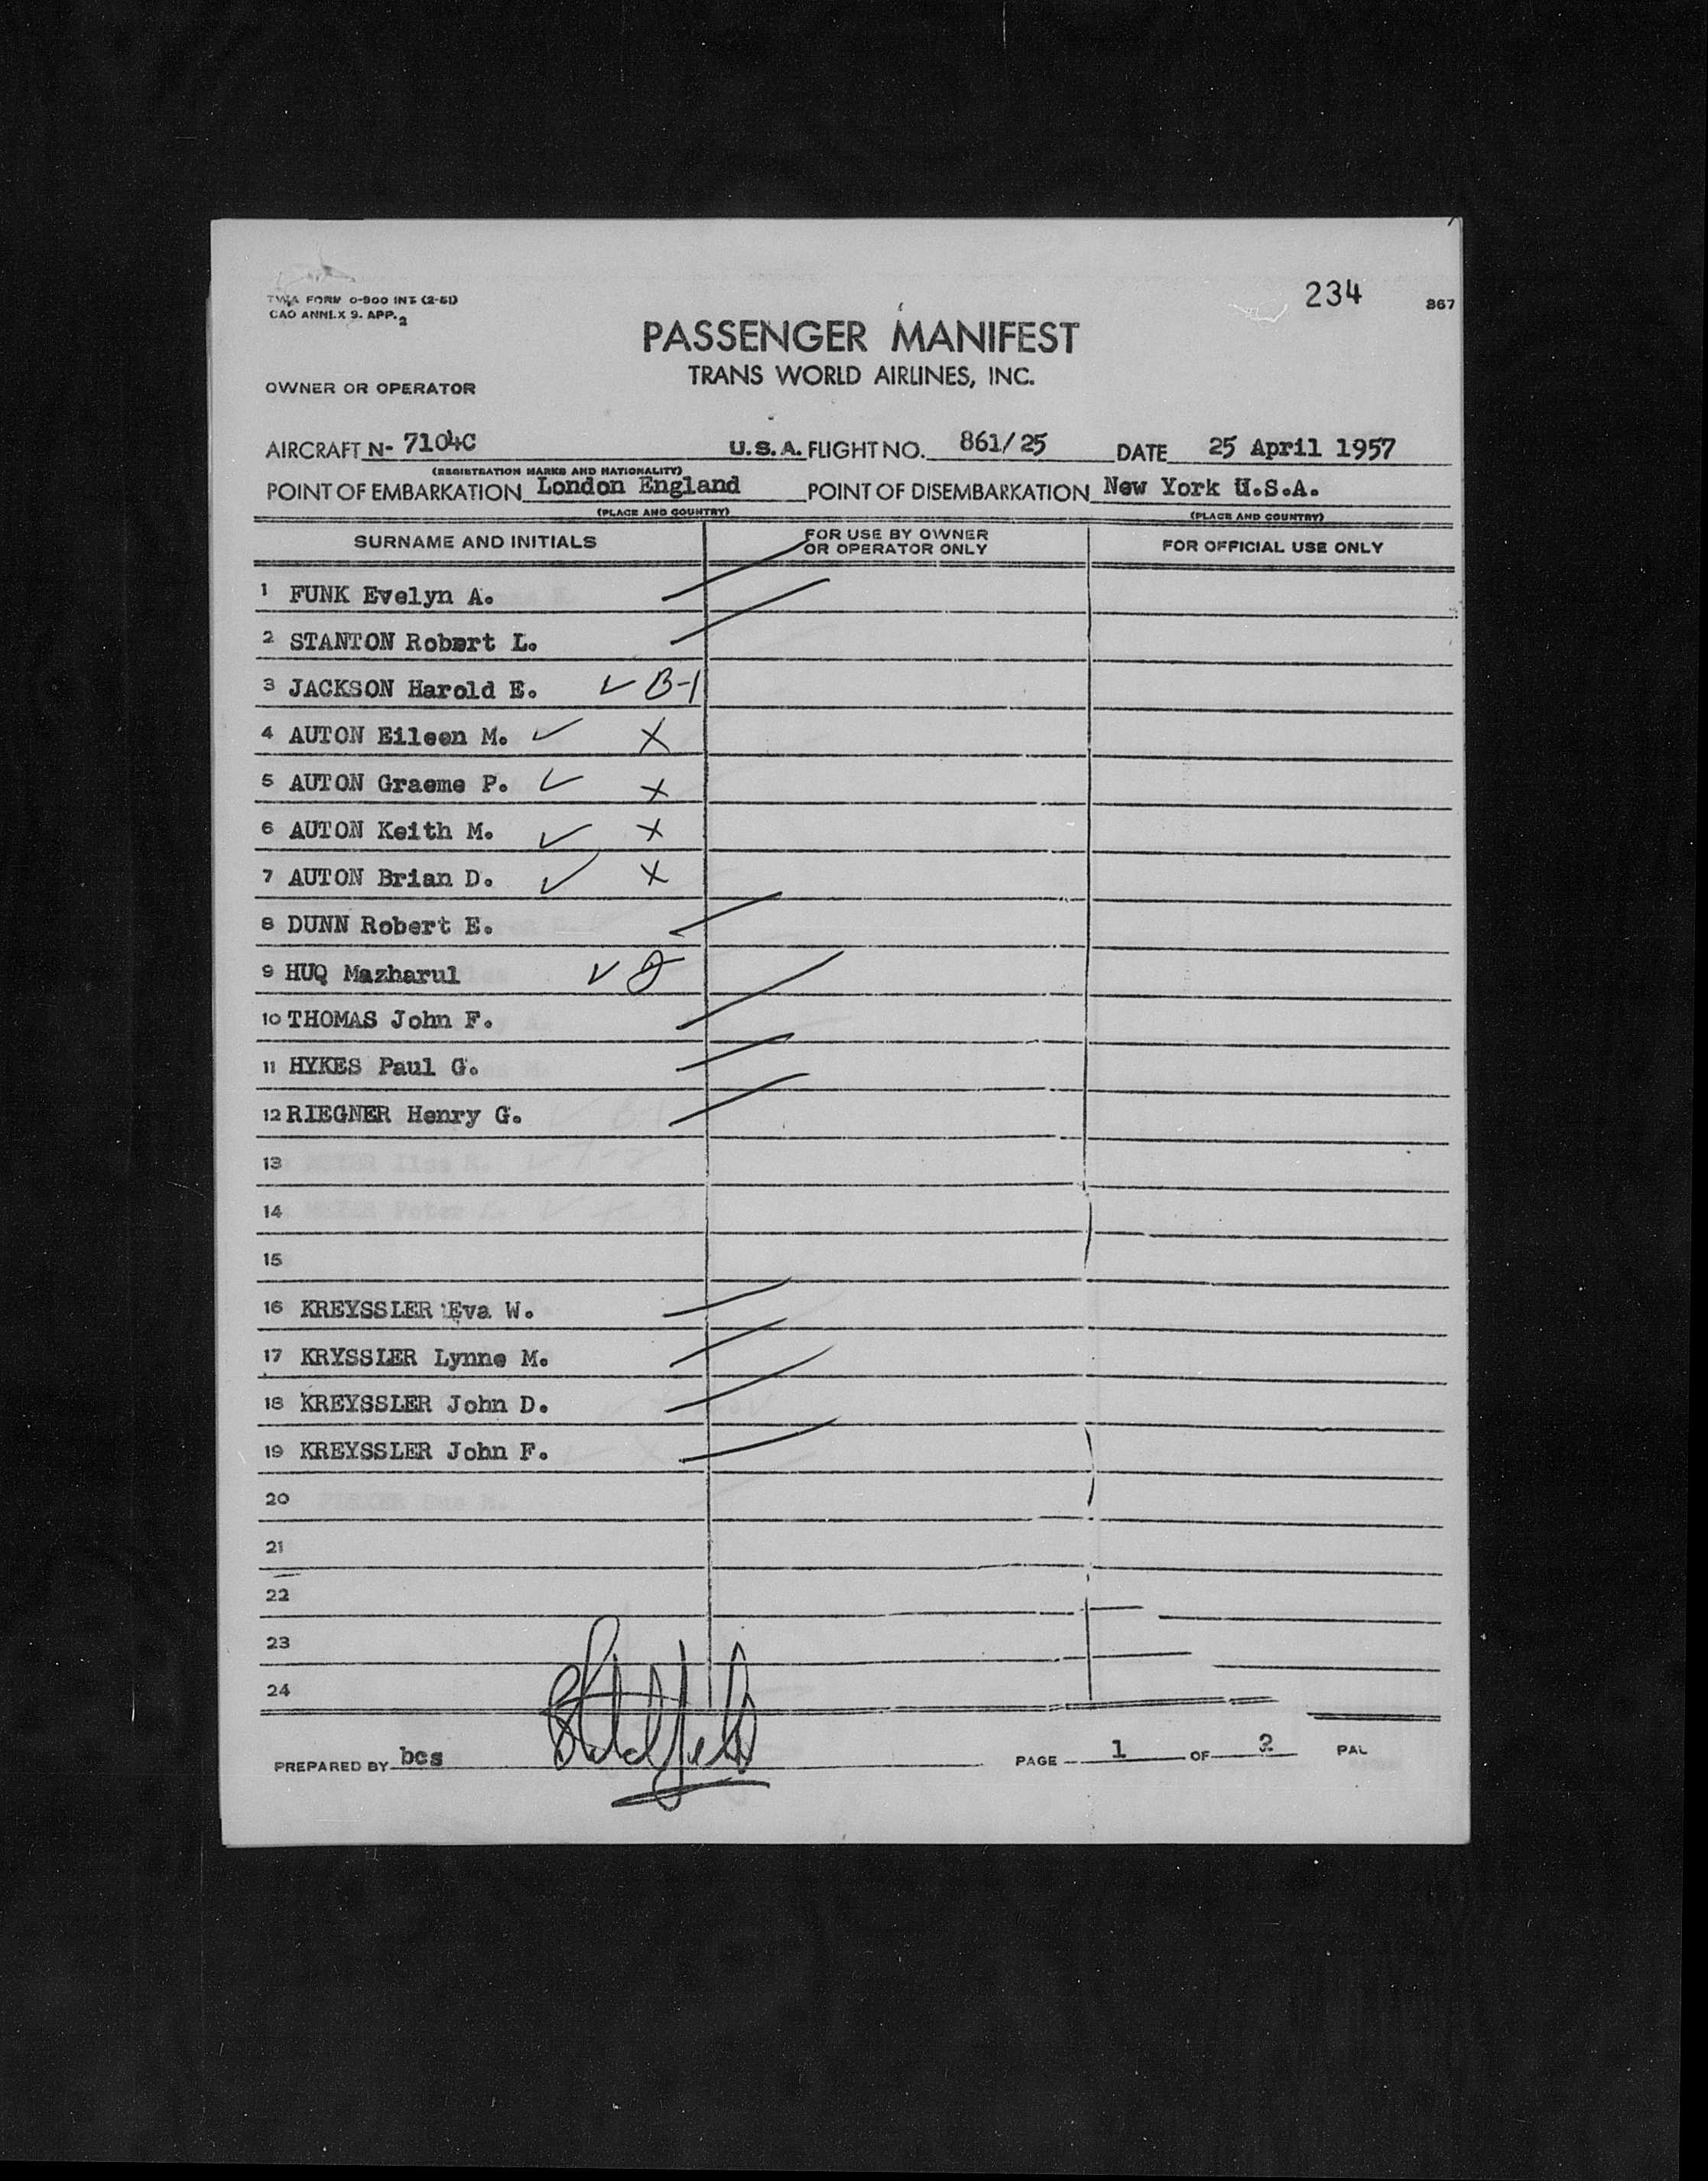 TWA FORM 0-900 INT (2-51)
CAO ANNEX 9. APP. 2
234
867
PASSENGER MANIFEST
TRANS WORLD AIRLINES, INC.
OWNER OR OPERATOR
AIRCRAFT N- 7104C U.S.A. FLIGHT NO. 861/25 DATE 25 April 1957
(REGISTRATION MARKS AND NATIONALITY)
POINT OF EMBARKATION London England POINT OF DISEMBARKATION New York U.S.A.
(PLACE AND COUNTRY) (PLACE AND COUNTRY)
SURNAME AND INITIALS FOR USE BY OWNER OR OPERATOR ONLY FOR OFFICIAL USE ONLY
1 FUNK Evelyn A.
2 STANTON Robert L.
3 JACKSON Harold E. ✓ B-1
4 AUTON Eileen M. ✓ X
5 AUTON Graeme P. ✓ X
6 AUTON Keith M. ✓ X
7 AUTON Brian D. ✓ X
8 DUNN Robert E.
9 HUQ Mazharul ✓
10 THOMAS John F.
11 HYKES Paul G.
12 RIEGNER Henry G.
13
14
15
16 KREYSSLER Eva W.
17 KRYSSLER Lynne M.
18 KREYSSLER John D.
19 KREYSSLER John F.
20
21
22
23
24
PREPARED BY bcs PAGE 1 OF 2 PAL